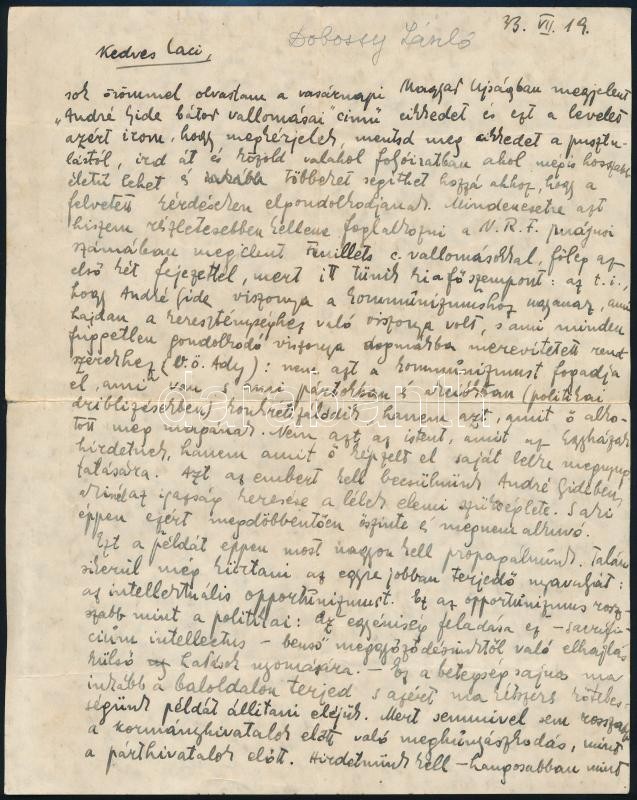 33. VII. 19.
Dobossy László
Kedves Laci,
sok örömmel olvastam a vasárnapi Magyar Ujságban megjelent
"André Gide bátor vallomásai" cimű cikkedet és ezt a levelet
azért irom, hogy megkérjelek, mentsd meg cikkedet a pusztu-
lástól, ird át és közöld valahol folyóiratban ahol mégis hosszabb
életű lehet és inkább többeket segithet hozzá ahhoz, hogy a
felvetett kérdéseken elgondolkodjanak. Mindenesetre azt
hiszem részletesebben kellene foglalkozni a N.R.F. juniusi
számában megjelent Feuillets c. vallomásokkal, főleg az
első két fejezettel, mert itt tünik ki a főszempont: az t.i.,
hogy André Gide viszonya a kommünizmushoz ugyanaz, ami
hajdan a kereszténységhez való viszonya volt, s ami minden
független gondolkodó viszonya dogmákba merevitett rend-
szerekhez (V.ö. Ady): nem azt a kommünizmust fogadja
el, ami van s mai pártokban és akciókban (politikai
driblizésekben) konkretizálódik, hanem azt, amit ő alko-
tott meg magának. Nem azt az istent, amit az Egyházak
hirdetnek, hanem amit ő képzelt el saját lelke megnyug-
tatására. Azt az embert kell becsülnünk André Gideben,
akinél az igazság keresése a lélek elemi szükséglete. S aki
éppen ezért megdöbbentően őszinte és megnemalkuvó.
Ezt a példát éppen most nagyon kell propagálnunk. Talán
sikerül még kiirtani az egyre jobban terjedő nyavalyát:
az intellektuális opportünizmust. Ez az opportünizmus rosz-
szabb mint a politikai: az egyéniség feladása ez – sacrifi-
cium intellectus – benső meggyőződésünktől való elhajlás
külső hatások nyomására. – Ez a betegség sajna ma
inkább a baloldalon terjed s azért ma kétszeres köteles-
ségünk példát állitani eléjük. Mert semmivel sem rosszabb
a kormányhivatalok előtt való meghunyászkodás, mint
a párthivatalok előtt. Hirdetnünk kell – hangosabban mint
darabanth